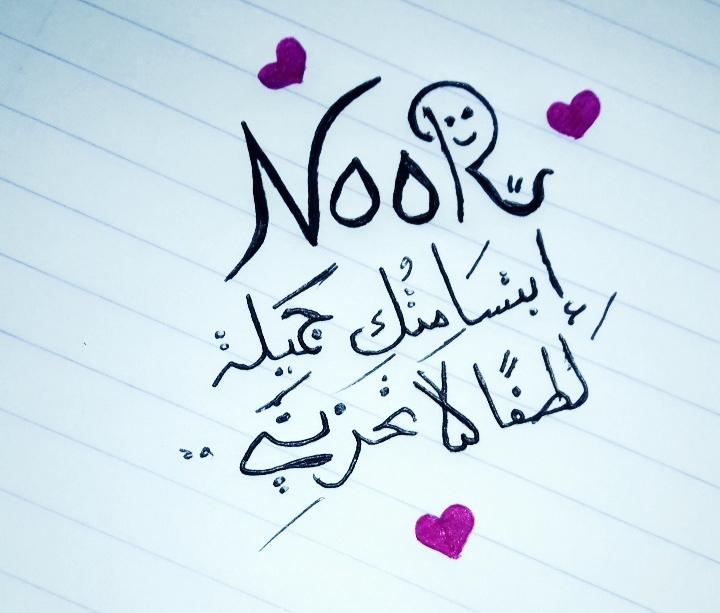 NooR
إبتسَامتُكِ جَميلة
لِطفًا لا تَحزنِي